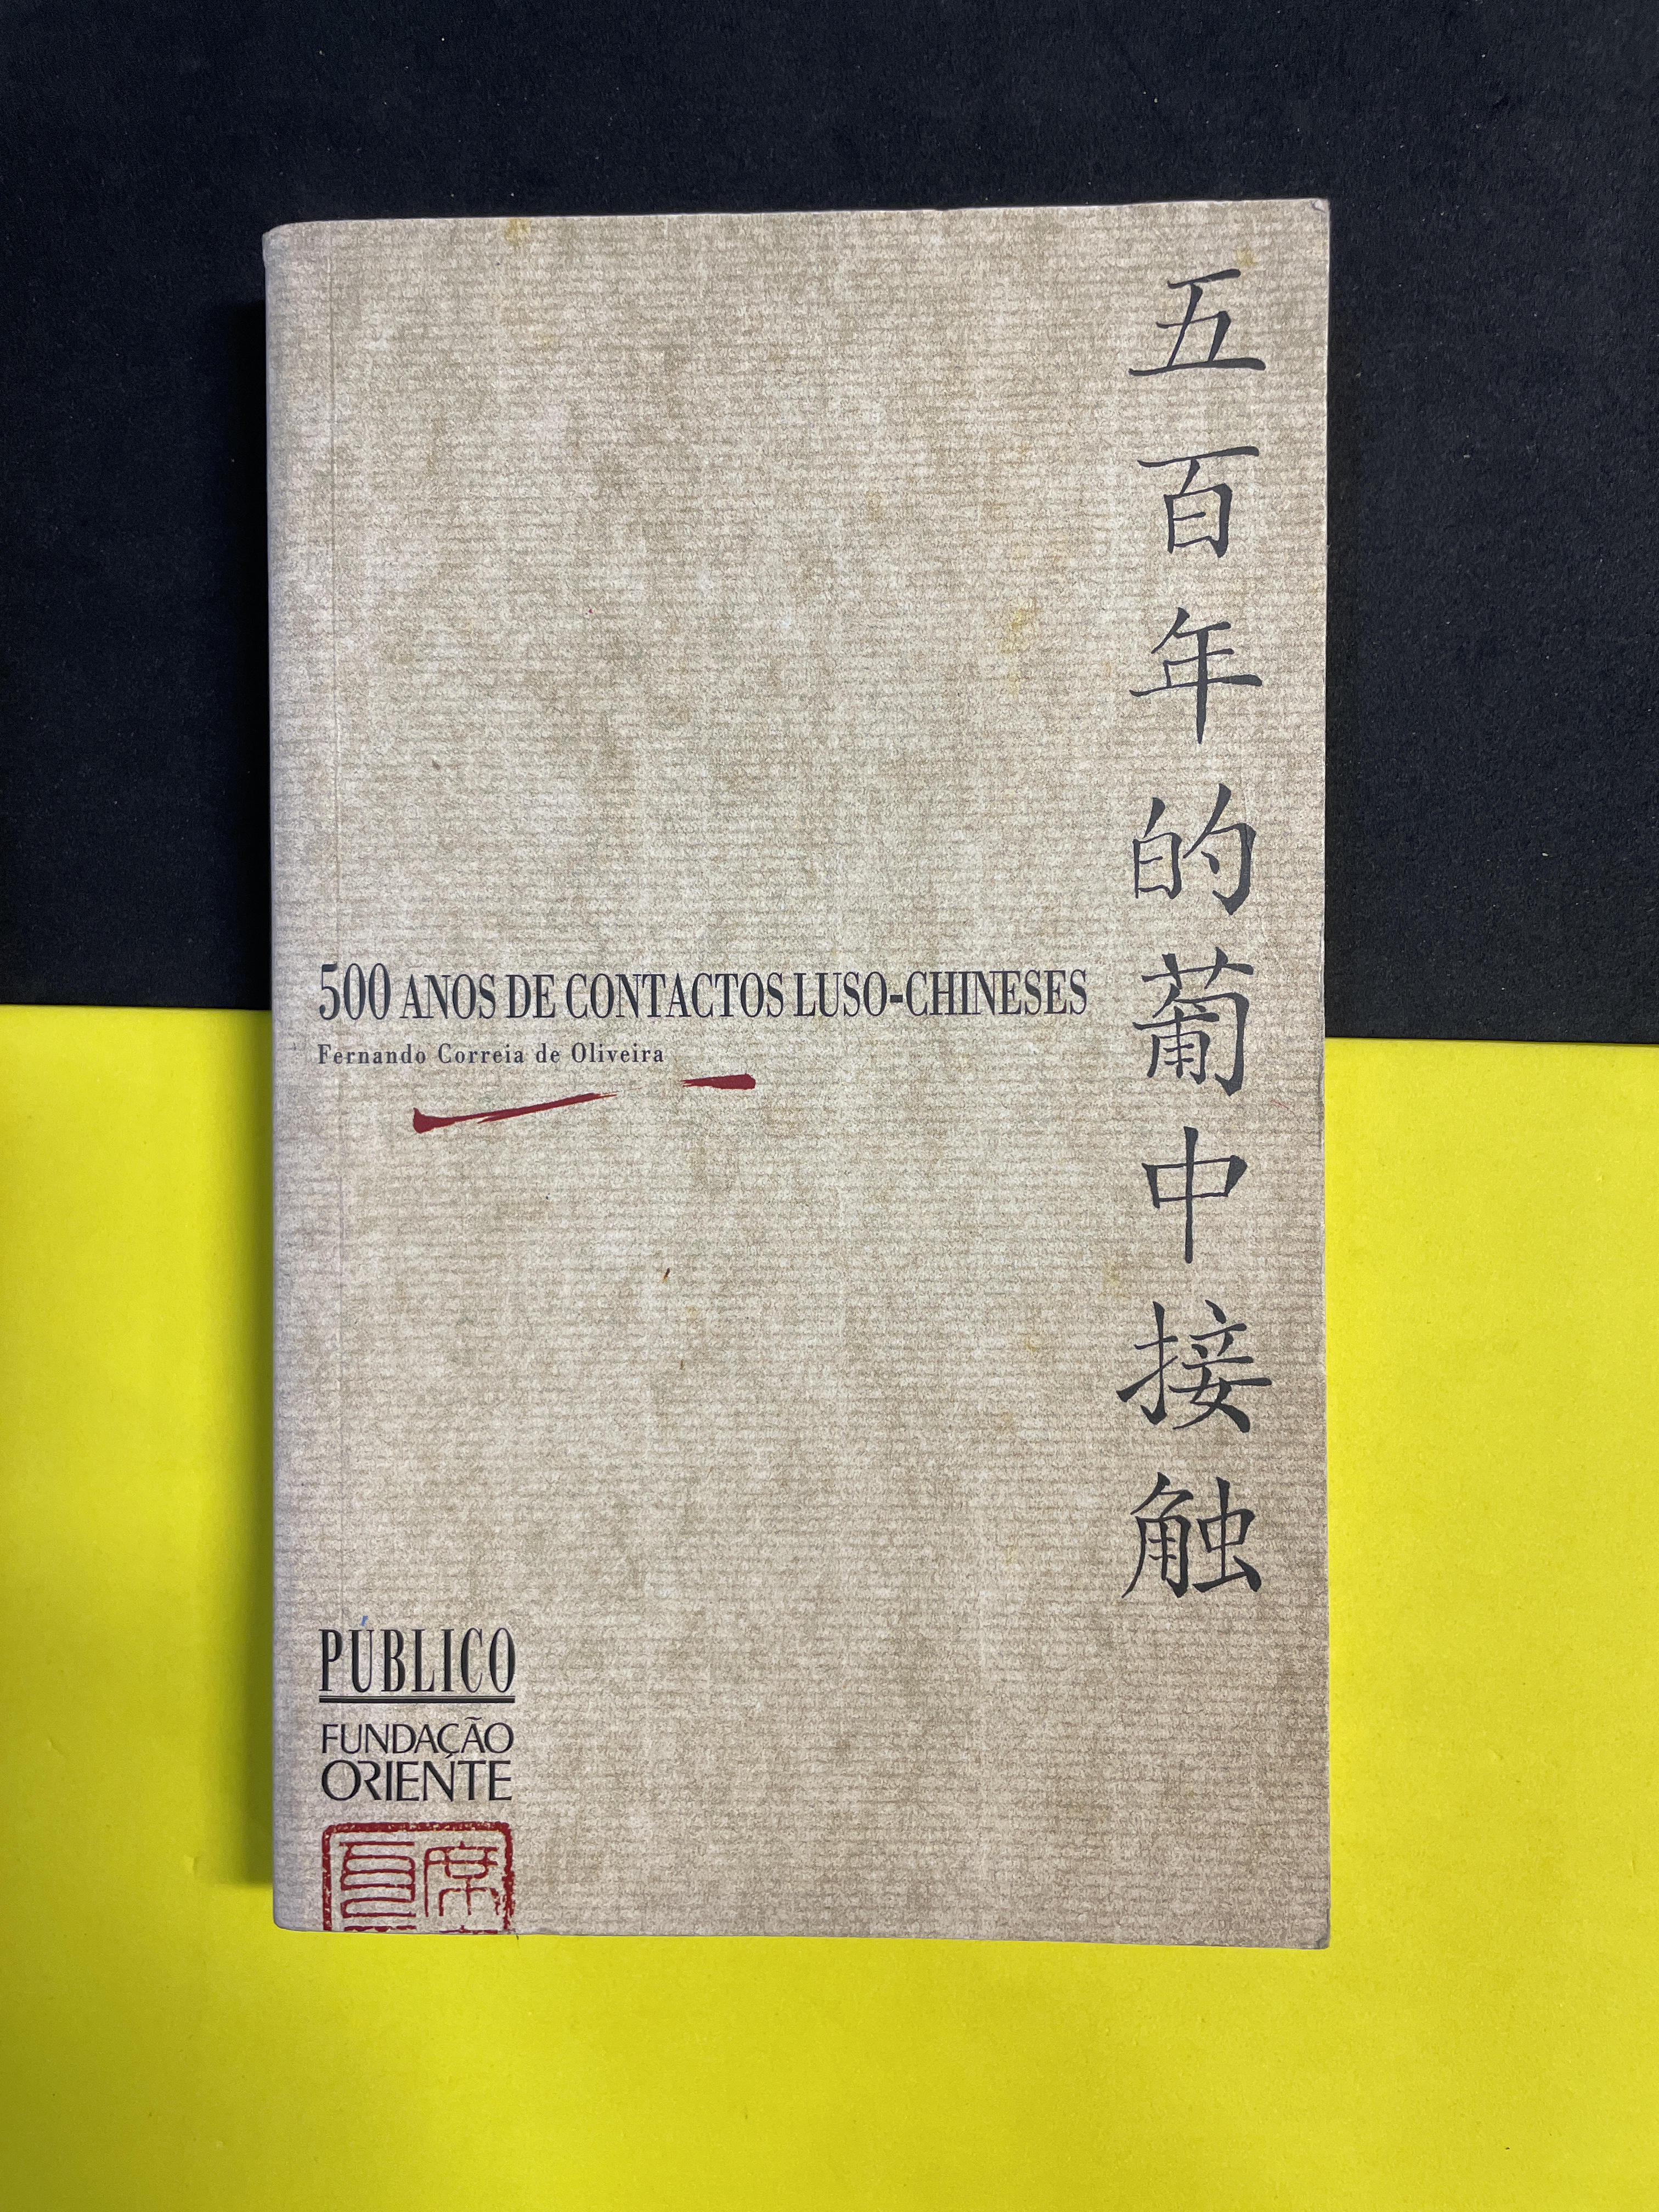 五百年的葡中接触
500 ANOS DE CONTACTOS LUSO-CHINESES
Fernando Correia de Oliveira
PÚBLICO
FUNDAÇÃO
ORIENTE